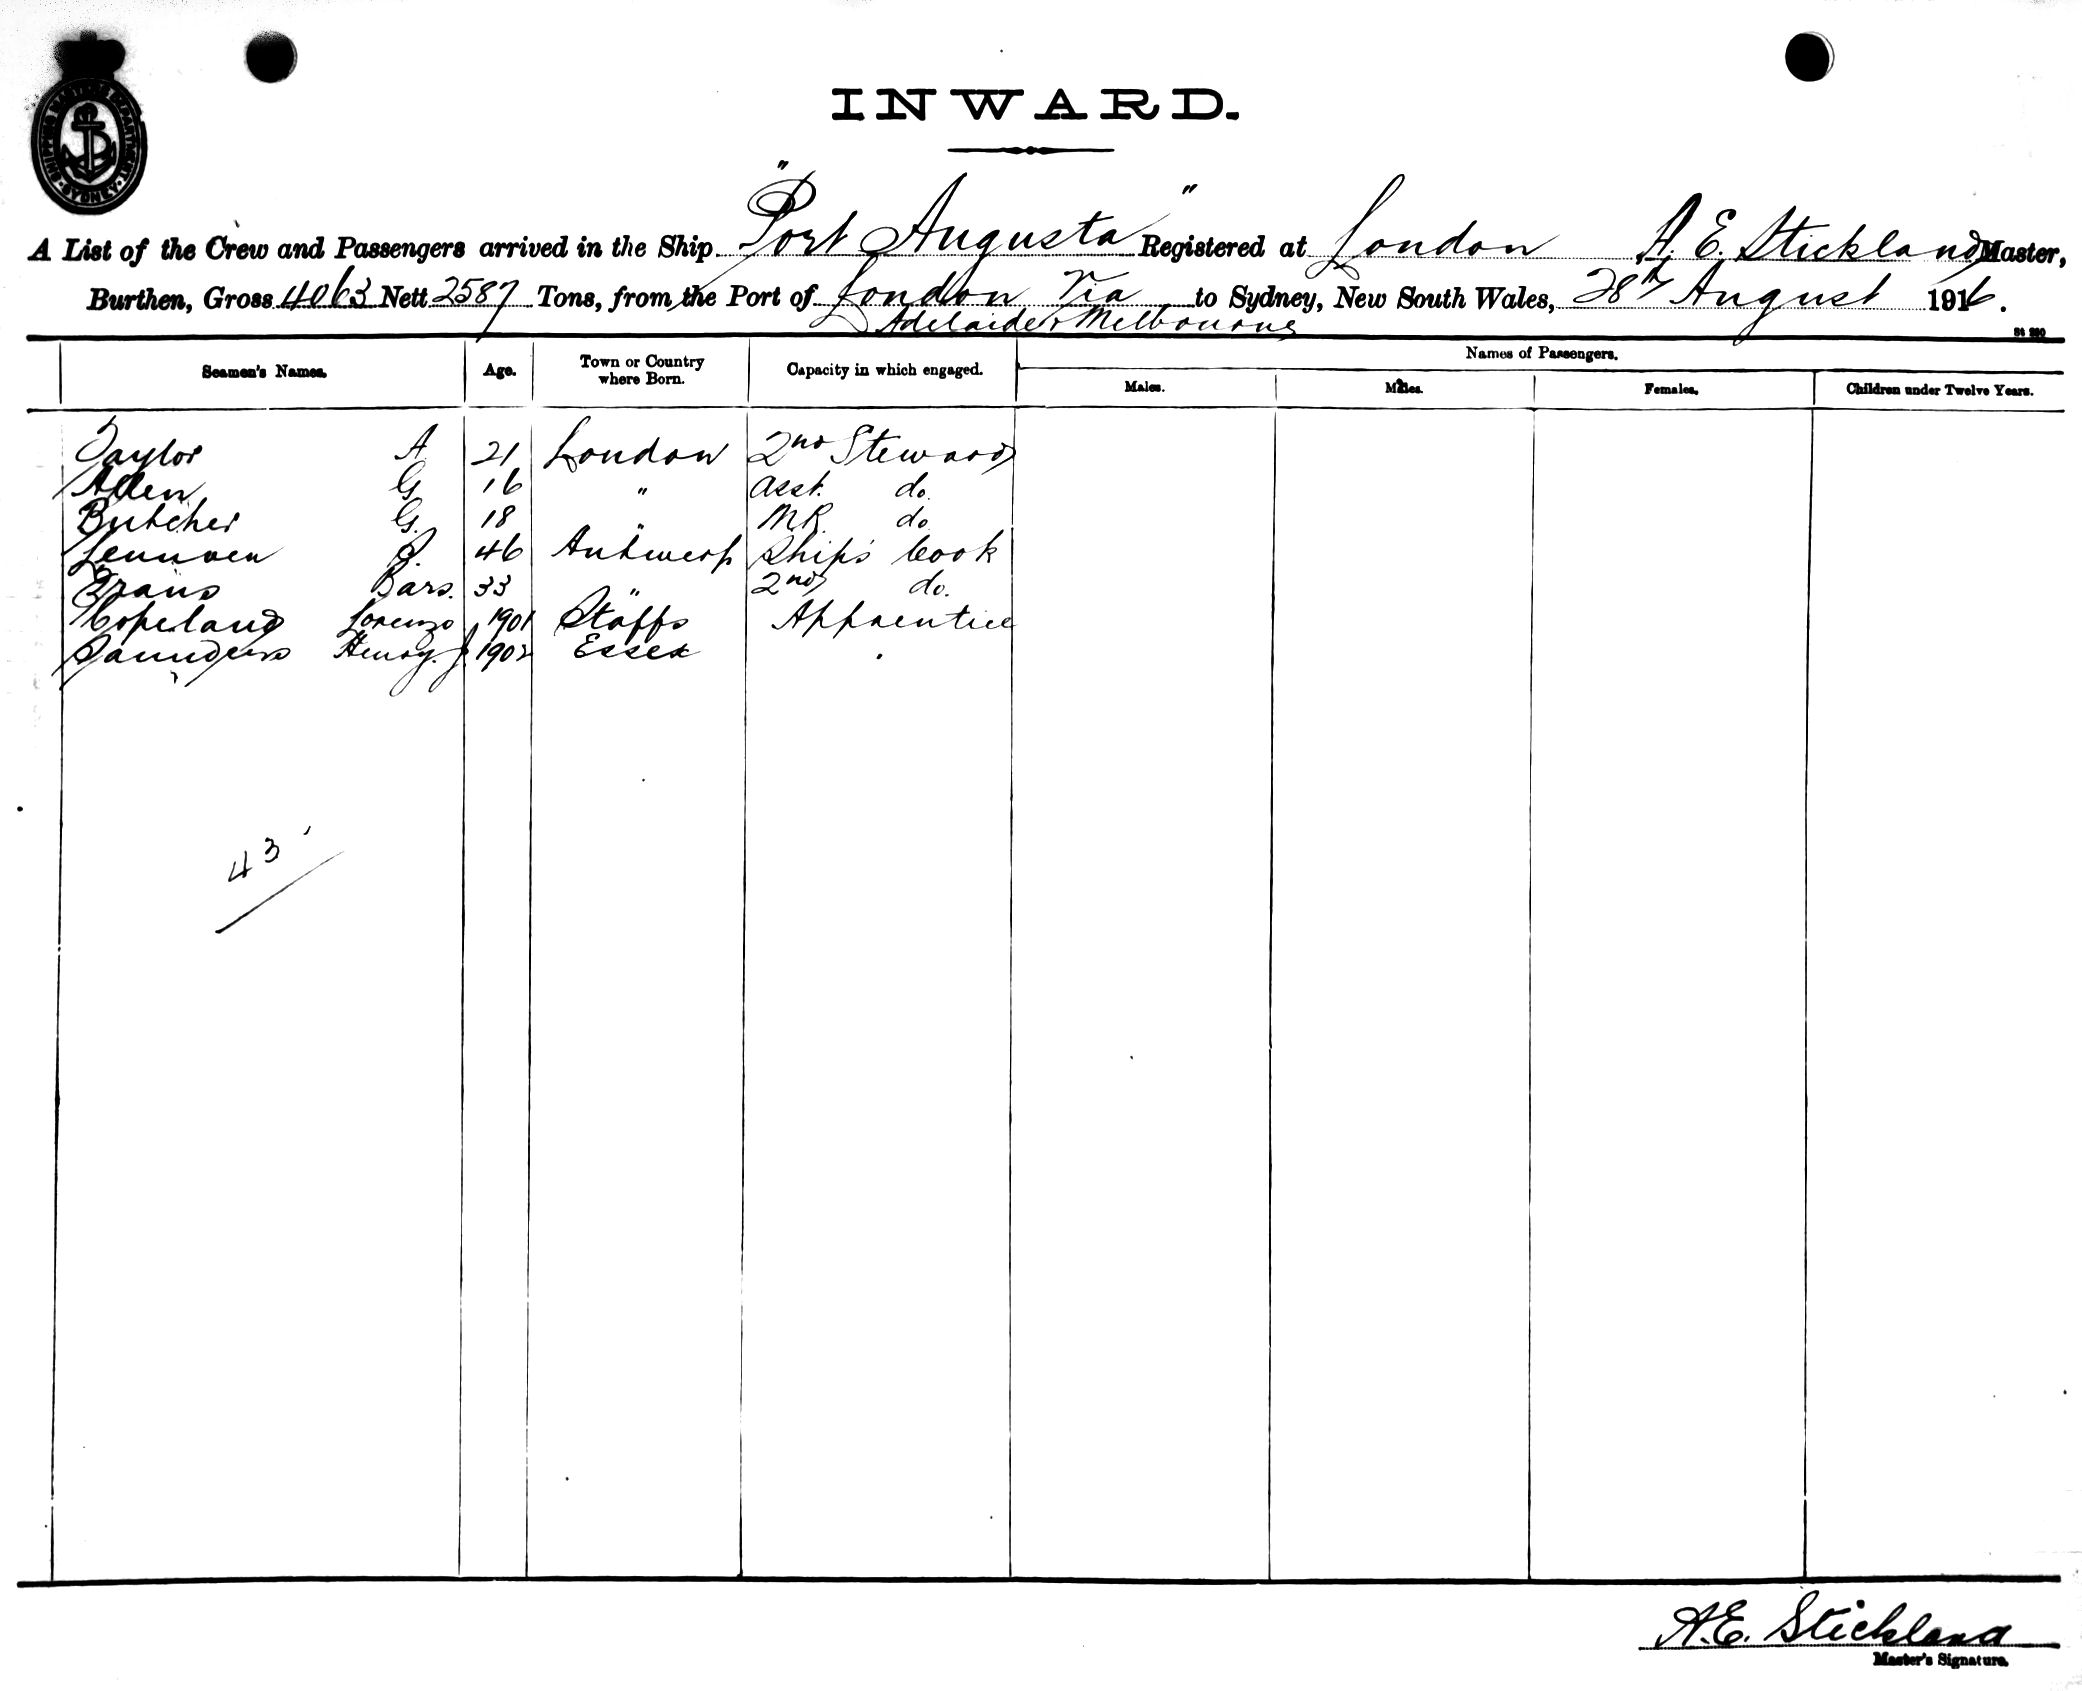 SHIPPING MASTERS DEPARTMENT SYDNEY
INWARD.
A List of the Crew and Passengers arrived in the Ship "Port Augusta" Registered at London A. E. Stickland Master,
Burthen, Gross 4063 Nett 2587 Tons, from the Port of London Via to Sydney, New South Wales, 28th August 1916.
Adelaide & Melbourne
Seamen's Names. Age. Town or Country where Born. Capacity in which engaged. Names of Passengers.
Males. Males. Females. Children under Twelve Years.
Taylor A 21 London 2nd Steward
Allen G 16 " Asst. do.
Butcher G. 18 " M.R. do
46 Antwerp Ship's Cook
Frans Bars. 33 " 2nd do.
Copeland Lorenzo 1901 Staffs Apprentice
Saunders Henry. J. 1902 Essex
43
A.E. Stickland
Master's Signature.